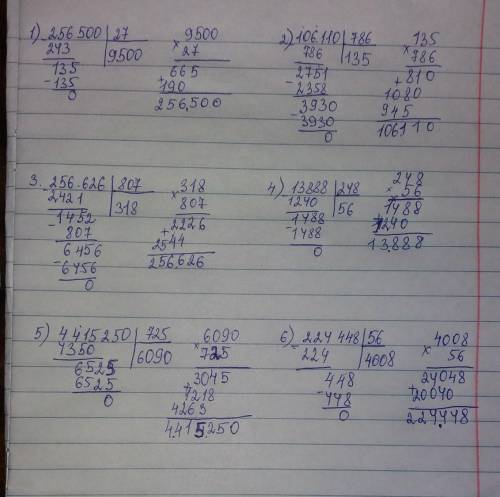 1) 256500 | 27 × 9500
243 | 9500 27
135 665
-135 +190
0 256.500
2) 106.110 | 786 × 135
786 | 135 786
2751 +810
-2358 1080
-3930 945
3930 106110
0
3. 256.626 | 807 × 318
2421 | 318 807
-1452 2226
807 + 2544
6456 256.626
-6456
0
4) 13888 | 248 248
1240 | 56 × 56
-1488 1488
1488 1240
0 13.888
5) 4415250 | 725 × 6090
4350 | 6090 725
6525 3045
6525 +1218
0 4263
4.415.250
6) 224448 | 56 × 4008
-224 | 4008 56
448 24048
-448 +20040
0 224.448